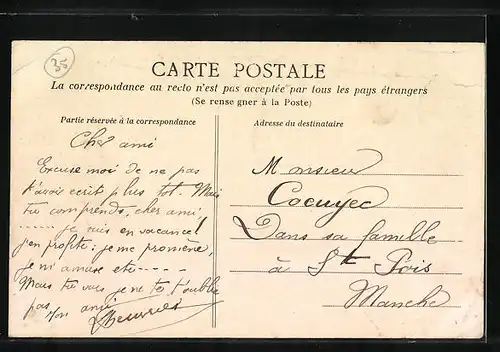 35
CARTE POSTALE
La correspondance au recto n'est pas acceptée par tous les pays étrangers
(Se renseigner à la Poste)
Partie réservée à la correspondance
Adresse du destinataire
Cher ami
Excuse moi de ne pas
t'avoir ecrit plus tot. Mais
tu comprends, cher ami,
je suis en vacances
j'en profite: je me promène,
je m'amuse etc - - - -
Mais tu vois je ne t'oublie
pas
Ton ami
Monsieur
Dans sa famille
à St Pois
Manche